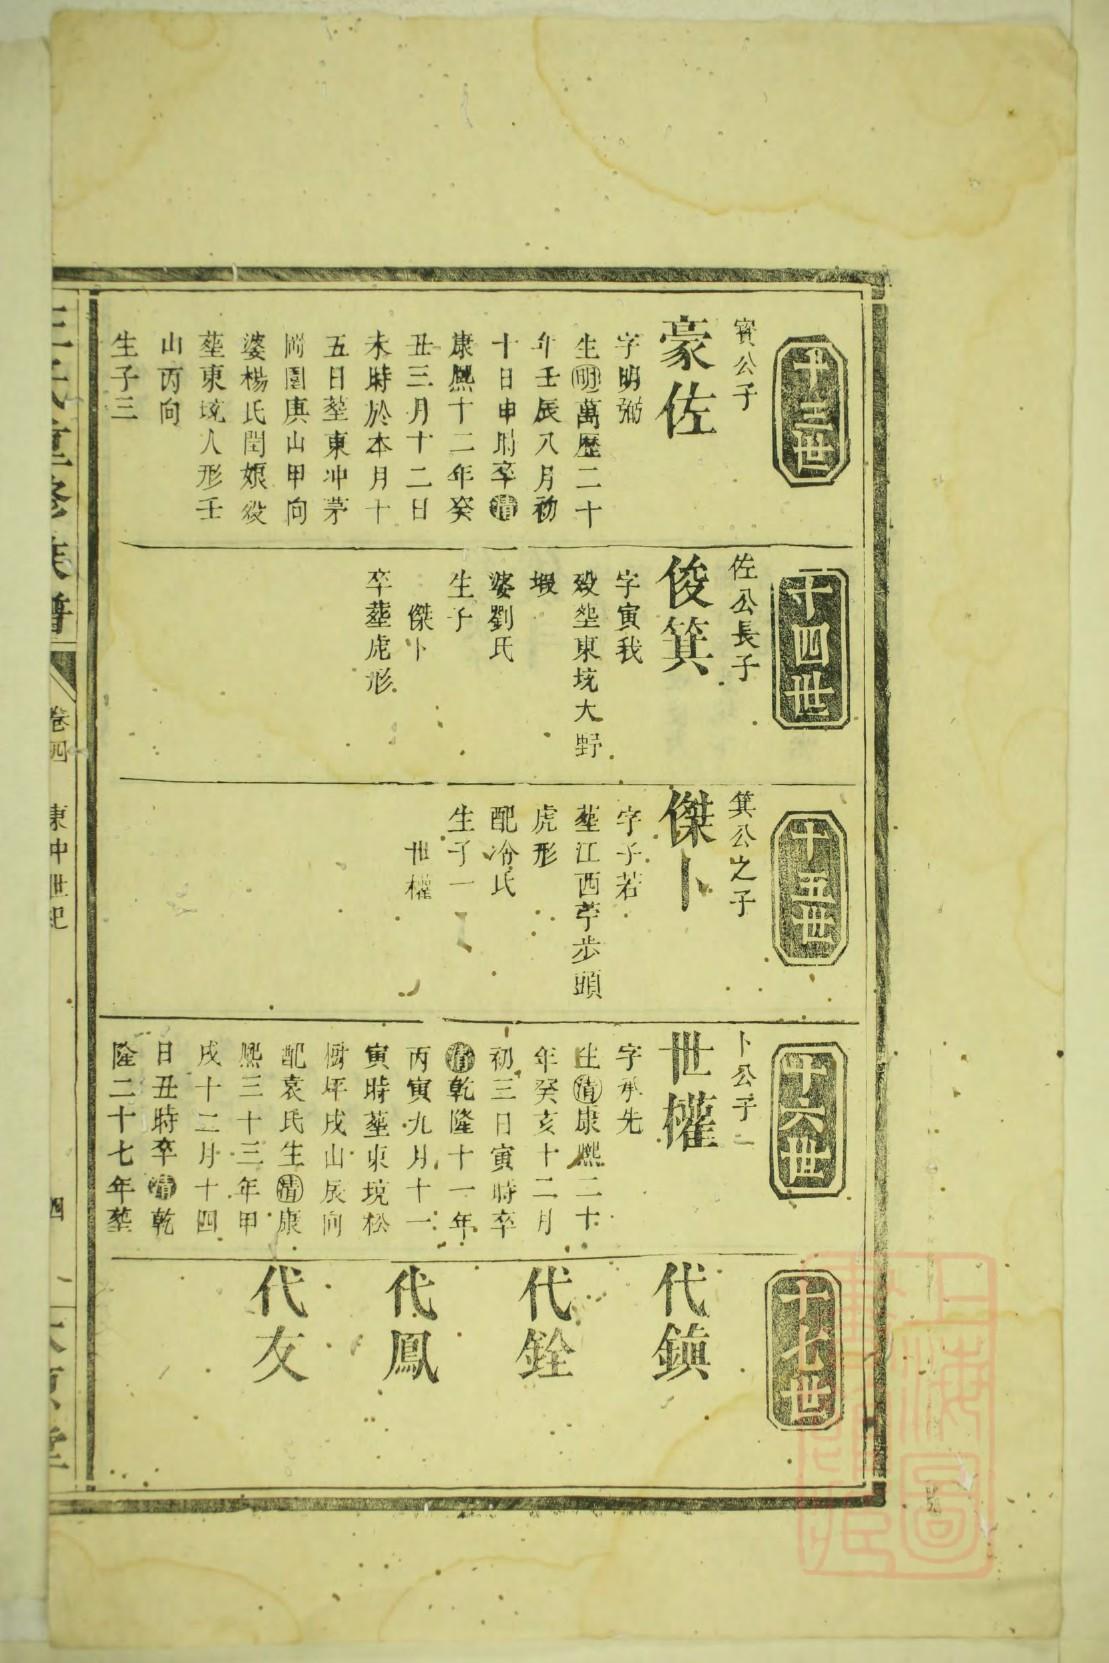 十三世
寳公子
豪佐
字明弼
生明萬歷二十
年壬辰八月初
十日申時卒清
康熙十二年癸
丑三月十二日
未時於本月十
五日塟東冲茅
岡園庚山甲向
婆楊氏閏娘殁
塟東垸人形壬
山丙向
生子三
十四世
佐公長子
俊箕
字寅我
殁塟東垸大野
塅
婆劉氏
生子
傑卜
卒塟虎形
十五世
箕公之子
傑卜
字子若
塟江西苧步頭
虎形
配冷氏
生子一
世權
十六世
卜公子
世權
字承先
生清康熙二十
年癸亥十二月
初三日寅時卒
清乾隆十一年
丙寅九月十一
寅時塟東垸松
樹坪戌山辰向
配袁氏生清康
熙三十三年甲
戌十二月十四
日丑時卒清乾
隆二十七年塟
十七世
代鎮
代銓
代鳳
代友
王氏重修族譜
卷四
東冲世紀
四
上海圖
書館藏